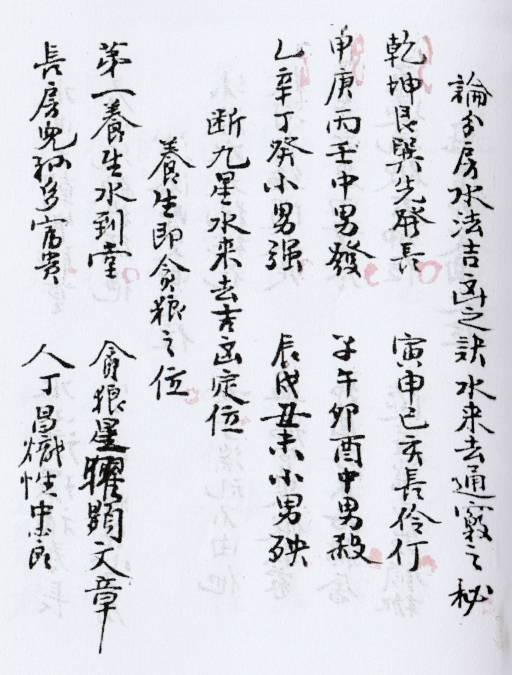 論分房水法吉凶之訣水来去通竅之秘
乾坤艮巽先發長 寅申巳亥長伶仃
甲庚丙壬中男發 子午卯酉中男殺
乙辛丁癸小男强 辰戌丑未小男殃
断九星水来去吉凶定位
養生即貪狼之位
第一養生水到堂 貪狼星曜顕文章
長房兒孫多富贵 人丁昌熾性忠良